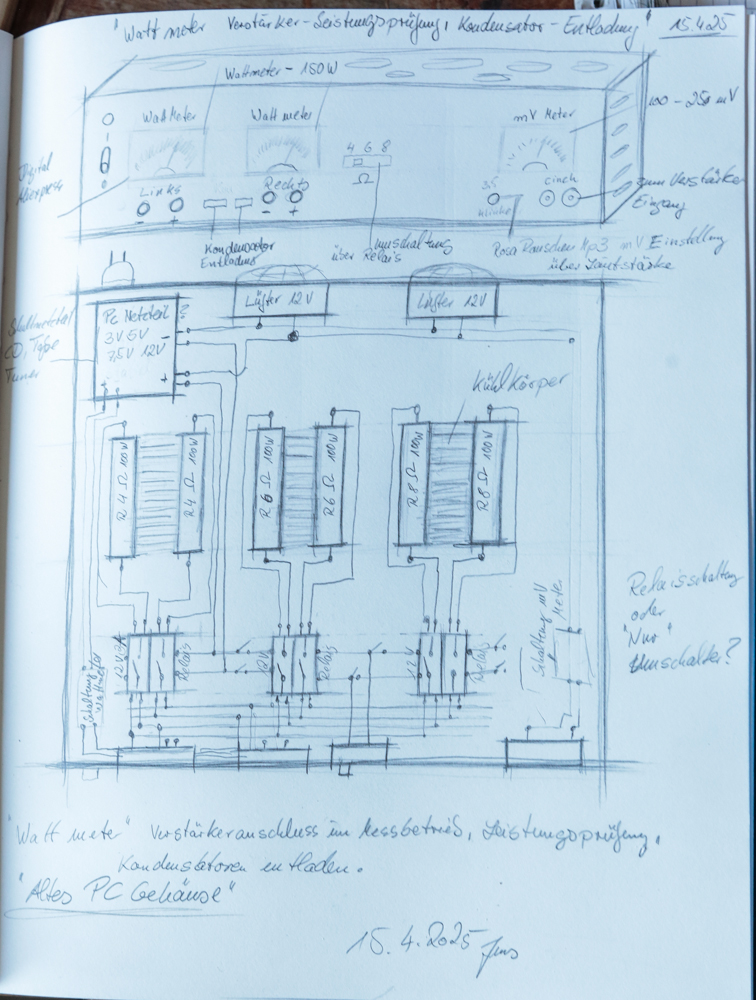 "Watt meter Verstärker-Leistungsprüfung, Kondensator-Entladung" 15.4.25
Wattmeter - 150W
100 - 250 mV
WattMeter
Watt meter
mV Meter
4 6 8
Ω
Digital
Aliexpress
Links
- +
Rechts
- +
3,5
Klinke
Cinch
zum Verstärker
Eingang
Kondensator
Entladung
Umschaltung
über Relais
Rosa Rauschen Mp3 mV Einstellung
über Lautstärke
Lüfter 12V
Lüfter 12V
Schaltnetzteil
CD, Tape
Tuner
Pc Netzteil
3V 5V
7,5V 12V
-
+
Kühlkörper
R 4 Ω 100W
R 4 Ω 100W
R 6 Ω 100W
R 6 Ω 100W
R 8 Ω 100W
R 8 Ω 100W
Schaltung
Wattmeter
12V
Relais
12V
Relais
12V
Relais
Schaltung mV
Meter
Relaisschaltung
oder
"Nur"
Umschalter?
"Watt meter" Verstärkeranschluss im Messbetrieb, Leistungsprüfung,
Kondensatoren entladen.
"Altes PC Gehäuse"
15.4.2025 Jens